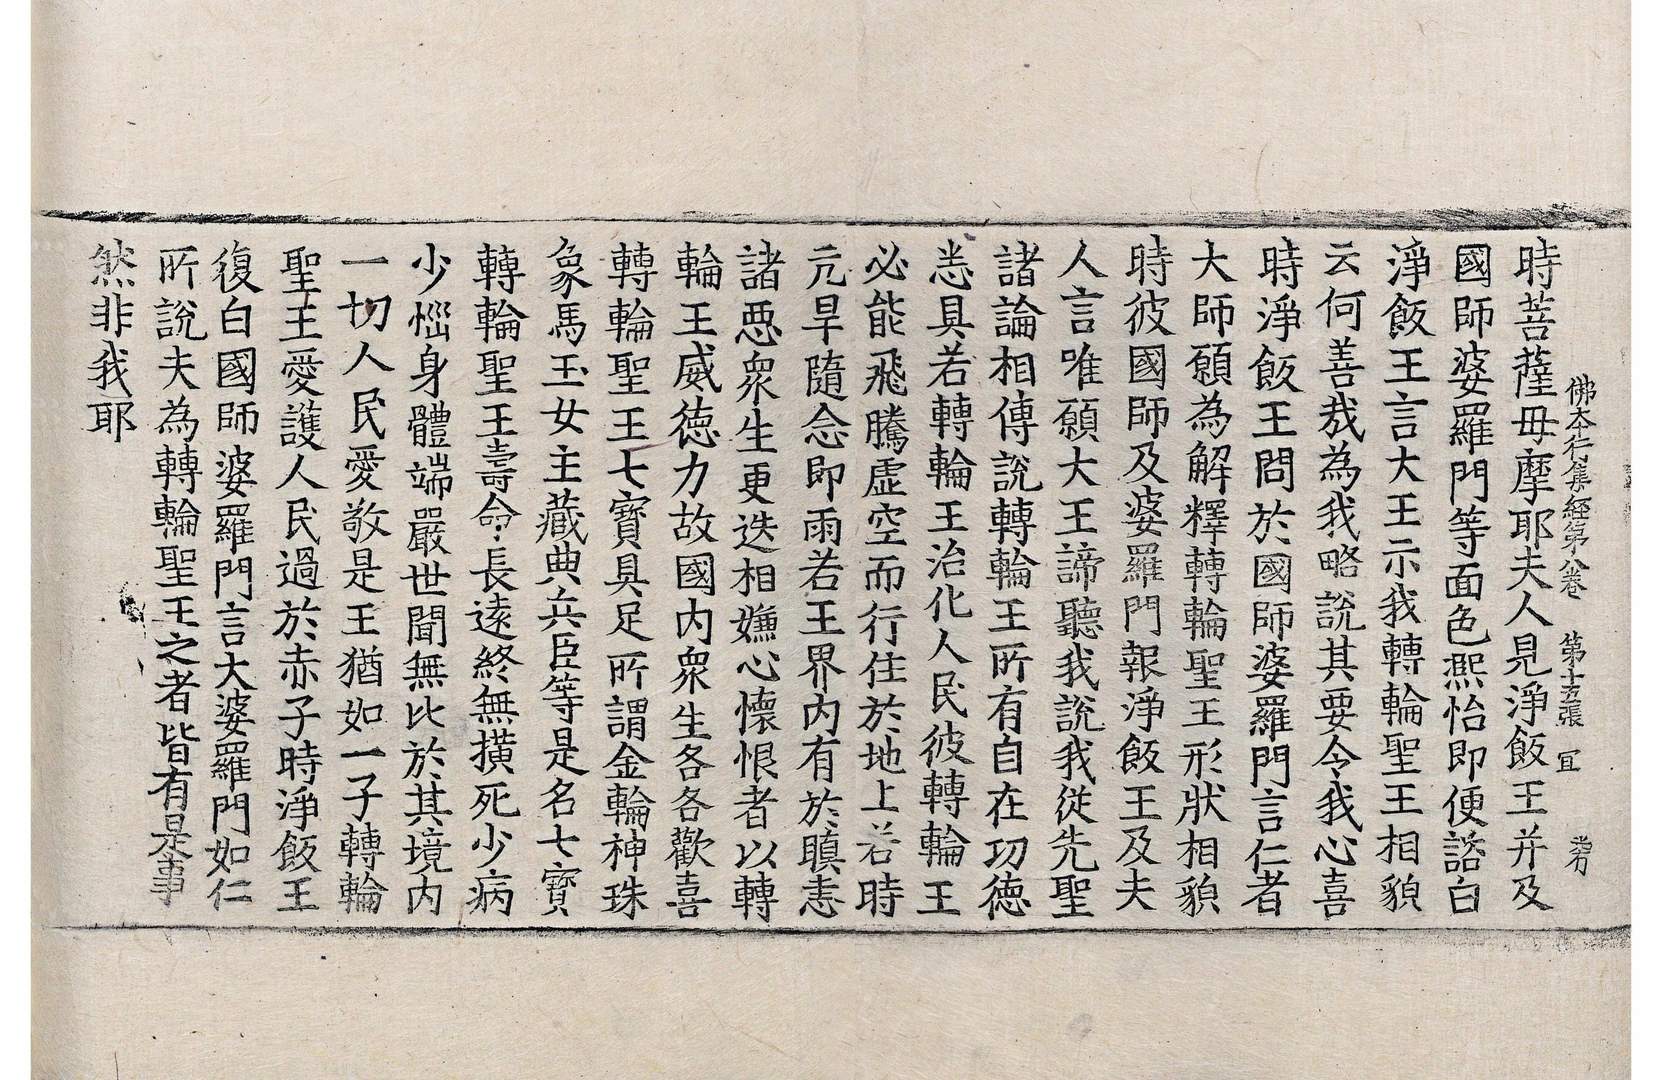 佛本行集經第八卷 第十五張 冝
時菩薩母摩耶夫人見淨飯王并及
國師婆羅門等面色熙怡即便諮白
淨飯王言大王示我轉輪聖王相貌
云何善哉為我略說其要令我心喜
時淨飯王問於國師婆羅門言仁者
大師願為解釋轉輪聖王形狀相貌
時彼國師及婆羅門報淨飯王及夫
人言唯願大王諦聽我說我從先聖
諸論相傳說轉輪王所有自在功德
悉具若轉輪王治化人民彼轉輪王
必能飛騰虛空而行住於地上若時
亢旱隨念即雨若王界內有於瞋恚
諸惡衆生更迭相嫌心懷恨者以轉
輪王威德力故國內衆生各各歡喜
轉輪聖王七寶具足所謂金輪神珠
象馬玉女主藏典兵臣等是名七寶
轉輪聖王壽命長遠終無撗死少病
少惱身體端嚴世間無比於其境內
一切人民愛敬是王猶如一子轉輪
聖王愛護人民過於赤子時淨飯王
復白國師婆羅門言大婆羅門如仁
所說夫為轉輪聖王之者皆有是事
然非我耶